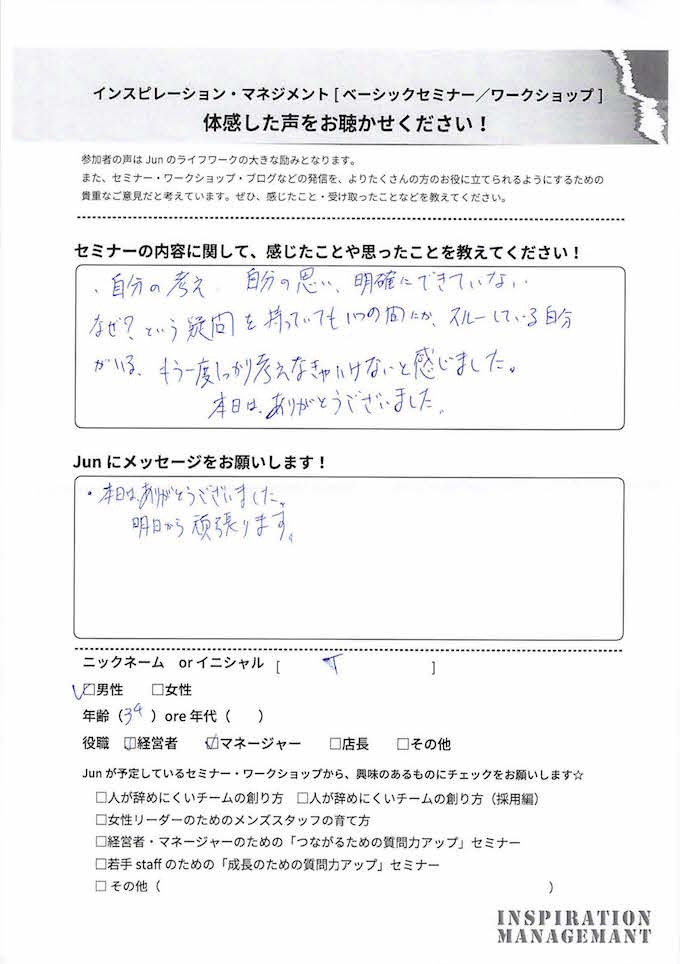 インスピレーション・マネジメント [ ベーシックセミナー／ワークショップ ]
体感した声をお聴かせください！
参加者の声は Jun のライフワークの大きな励みとなります。
また、セミナー・ワークショップ・ブログなどの発信を、よりたくさんの方のお役に立てられるようにするための
貴重なご意見だと考えています。ぜひ、感じたこと・受け取ったことなどを教えてください。
セミナーの内容に関して、感じたことや思ったことを教えてください！
、自分の考え 自分の思い、明確にできていない
なぜ？という疑問を持っていてもいつの間にか、スルーしている自分
がいる、もう一度しっかり考えなきゃいけないと感じました。
本日は、ありがとうございました。
Jun にメッセージをお願いします！
・本日は、ありがとうございました。
明日から頑張ります。
ニックネーム or イニシャル [ T ]
☑男性 □女性
年齢（34）ore 年代（ ）
役職 ☑経営者 ☑マネージャー □店長 □その他
Jun が予定しているセミナー・ワークショップから、興味のあるものにチェックをお願いします☆
□人が辞めにくいチームの創り方 □人が辞めにくいチームの創り方（採用編）
□女性リーダーのためのメンズスタッフの育て方
□経営者・マネージャーのための「つながるための質問力アップ」セミナー
□若手 staff のための「成長のための質問力アップ」セミナー
□ その他（ ）
INSPIRATION
MANAGEMANT